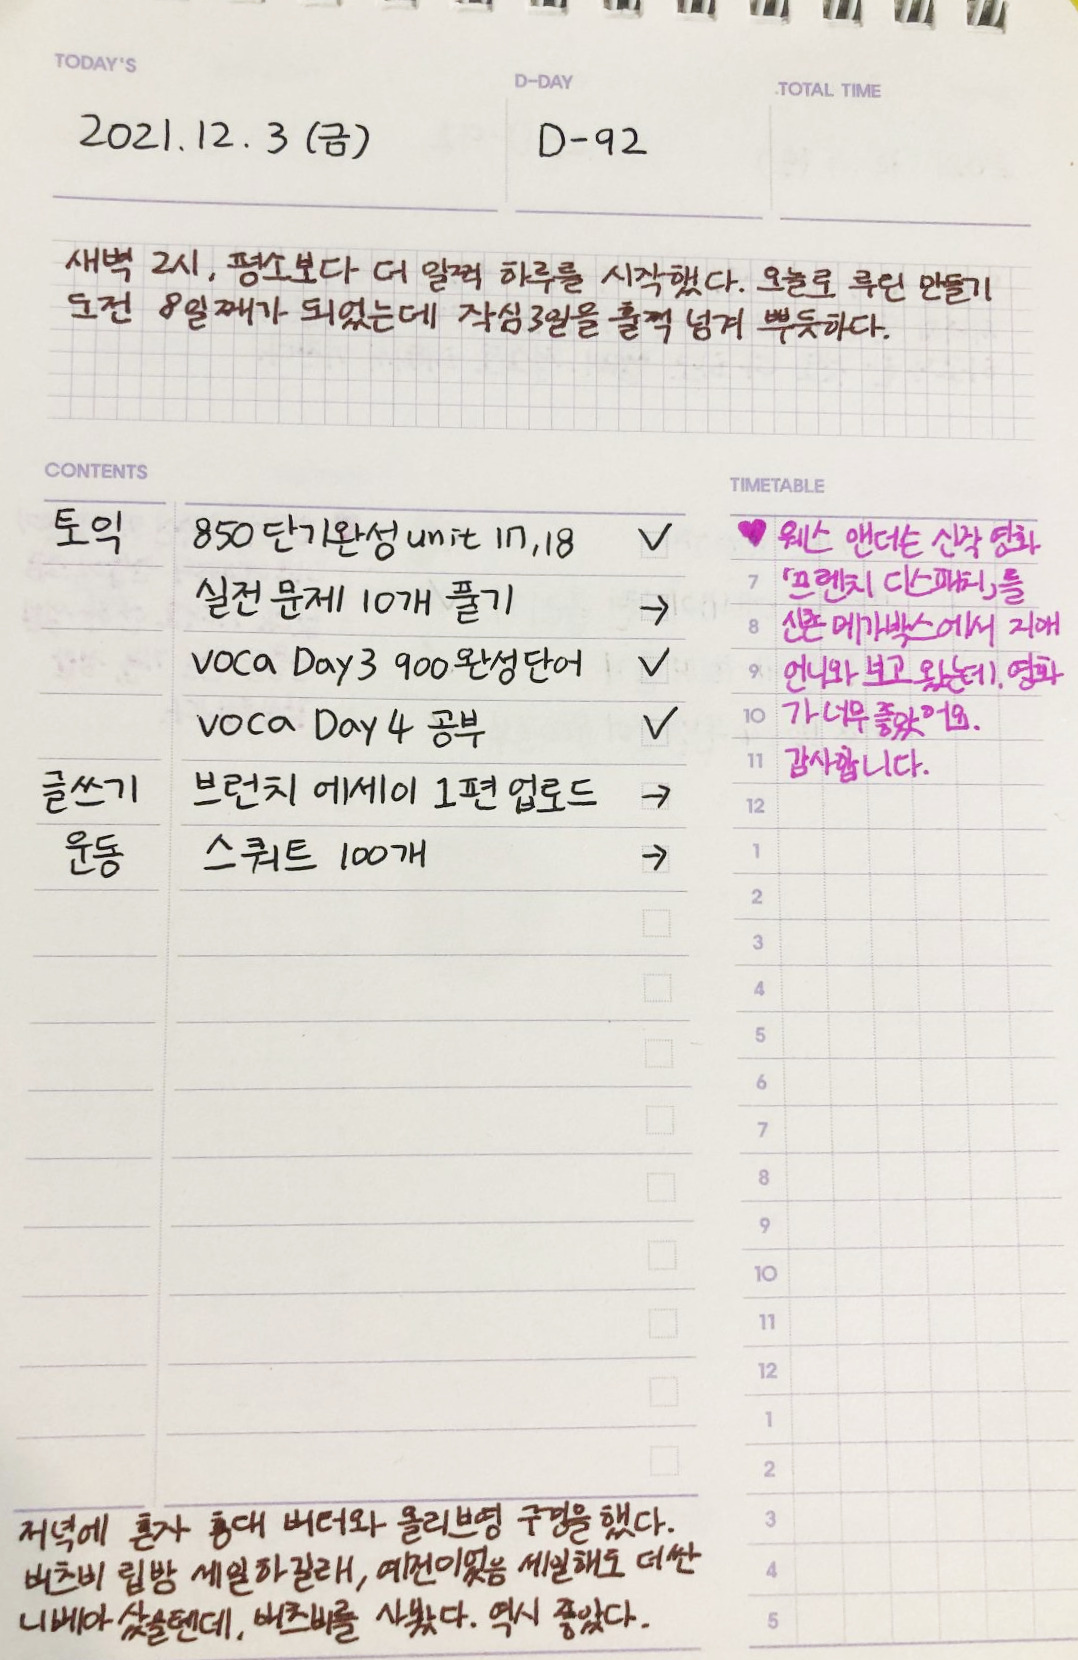 TODAY'S
D-DAY
TOTAL TIME
2021.12.3 (금)
D-92
새벽 2시, 평소보다 더 일찍 하루를 시작했다. 오늘로 루틴 만들기
도전 8일째가 되었는데 작심3일을 훌쩍 넘겨 뿌듯하다.
CONTENTS
토익 850 단기완성 unit 17,18 ✓
실전 문제 10개 풀기 →
voca Day 3 900 완성단어 ✓
voca Day 4 공부 ✓
글쓰기 브런치 에세이 1편 업로드 →
운동 스쿼트 100개 →
TIMETABLE
♥ 웨스 앤더슨 신작 영화
7 「프렌치 디스패치」를
8 신촌 메가박스에서 지애
9 언니와 보고 왔는데, 영화
10 가 너무 좋았어요.
11 감사합니다.
12
1
2
3
4
5
6
7
8
9
10
11
12
1
2
3
4
5
저녁에 혼자 홍대 버터와 올리브영 구경을 했다.
버츠비 립밤 세일하길래, 예전이었음 세일해도 더 싼
니베아 샀을텐데, 버츠비를 사봤다. 역시 좋았다.